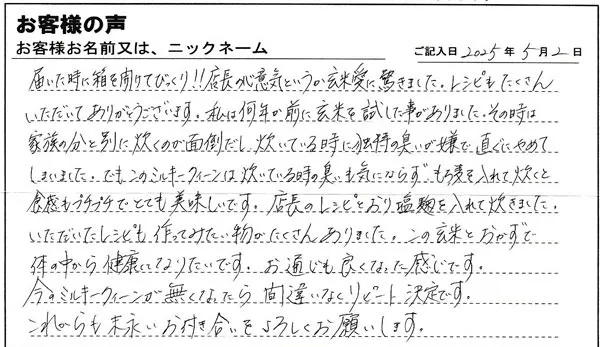 お客様の声
お客様お名前又は、ニックネーム
ご記入日 2025年 5月 2日
届いた時に箱を開けてびっくり!!店長の心意気というか玄米愛に驚きました。レシピもたくさん
いただいてありがとうございます。私は何年か前に玄米を試した事がありました。その時は
家族の分と別に炊くのが面倒だし、炊いている時に独特の臭いが嫌で直ぐにやめて
しまいました。でもこのミルキークィーンは炊いている時の臭いも気にならず、もち麦を入れて炊くと
食感もプチプチでとても美味しいです。店長のレシピどおり塩麹を入れて炊きました。
いただいたレシピも作ってみたい物がたくさんありました。この玄米とおかずで
体の中から健康になりたいです。お通じも良くなった感じです。
今のミルキークィーンが無くなったら間違いなくリピート決定です。
これからも末永いお付き合いをよろしくお願いします。